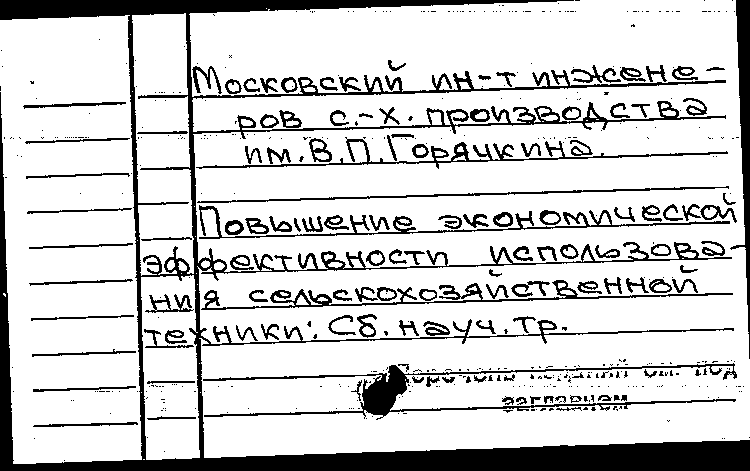 Московский ин-т инжене-
ров с.-х. производства
им. В.П. Горячкина.
Повышение экономической
эффективности использова-
ния сельскохозяйственной
техники: Сб. науч. тр.
Перечень изданий см. под
заглавием